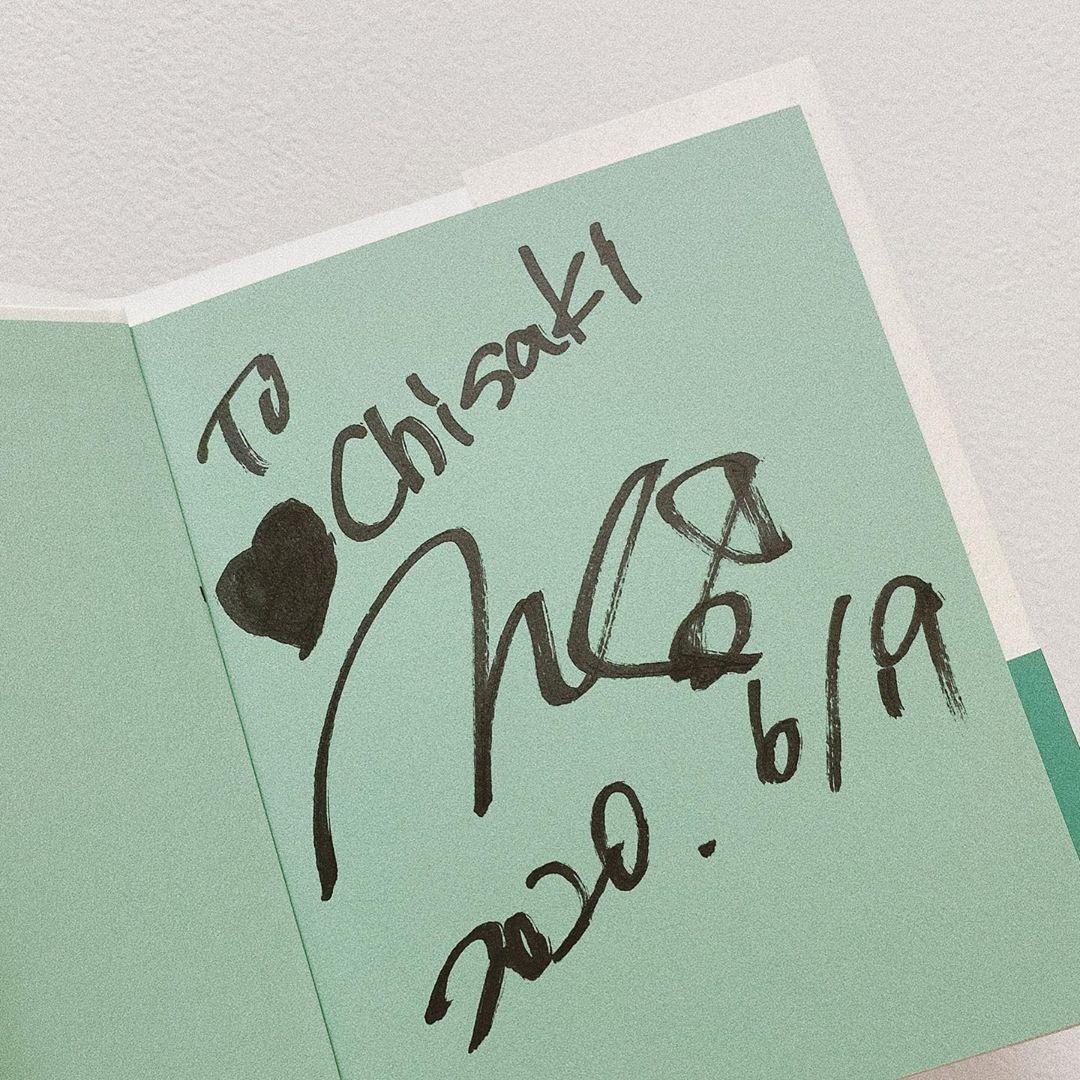 To
Chisaki
6/19
2020.